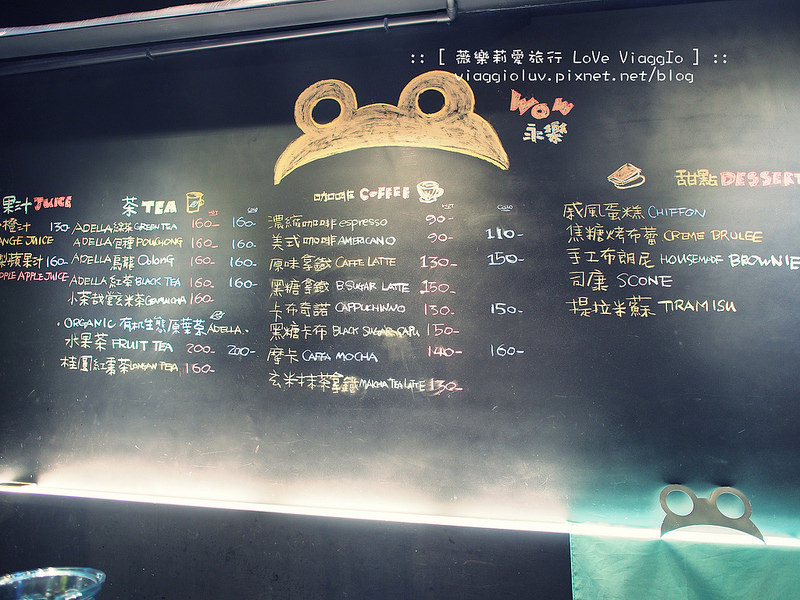 :: [ 薇樂莉愛旅行 LoVe ViaggIo ] ::
viaggioluv.pixnet.net/blog
WOW
永樂
果汁 JUICE
橙汁 130-
ANGE JUICE
梨蘋果汁 160-
APPLE JUICE
茶 TEA
HOT COLD
ADELLA 綠茶 GREEN TEA 160- 160-
ADELLA 包種 POUCHONG 160- 160-
ADELLA 烏龍 OOLONG 160- 160-
ADELLA 紅茶 BLACK TEA 160- 160-
玄米茶 GENMAICHA 160-
· ORGANIC 有机生態原葉茶 ADELLA ·
水果茶 FRUIT TEA 200- 200-
桂圓紅棗茶 LONGAN TEA 160-
咖啡 COFFEE
HOT COLD
濃縮咖啡 espresso 90-
美式咖啡 AMERICANO 90- 110-
原味拿鐵 CAFFE LATTE 130- 150-
黑糖拿鐵 B.SUGAR LATTE 150-
卡布奇諾 CAPPUCHINNO 130- 150-
黑糖卡布 BLACK SUGAR CAPU 150-
摩卡 CAFFA MOCHA 140- 160-
玄米抹茶拿鐵 MACHA TEA LATTE 130-
甜點 DESSERT
戚風蛋糕 CHIFFON
焦糖烤布蕾 CREME BRULEE
手工布朗尼 HOUSEMADE BROWNIE
司康 SCONE
提拉米蘇 TIRAMISU